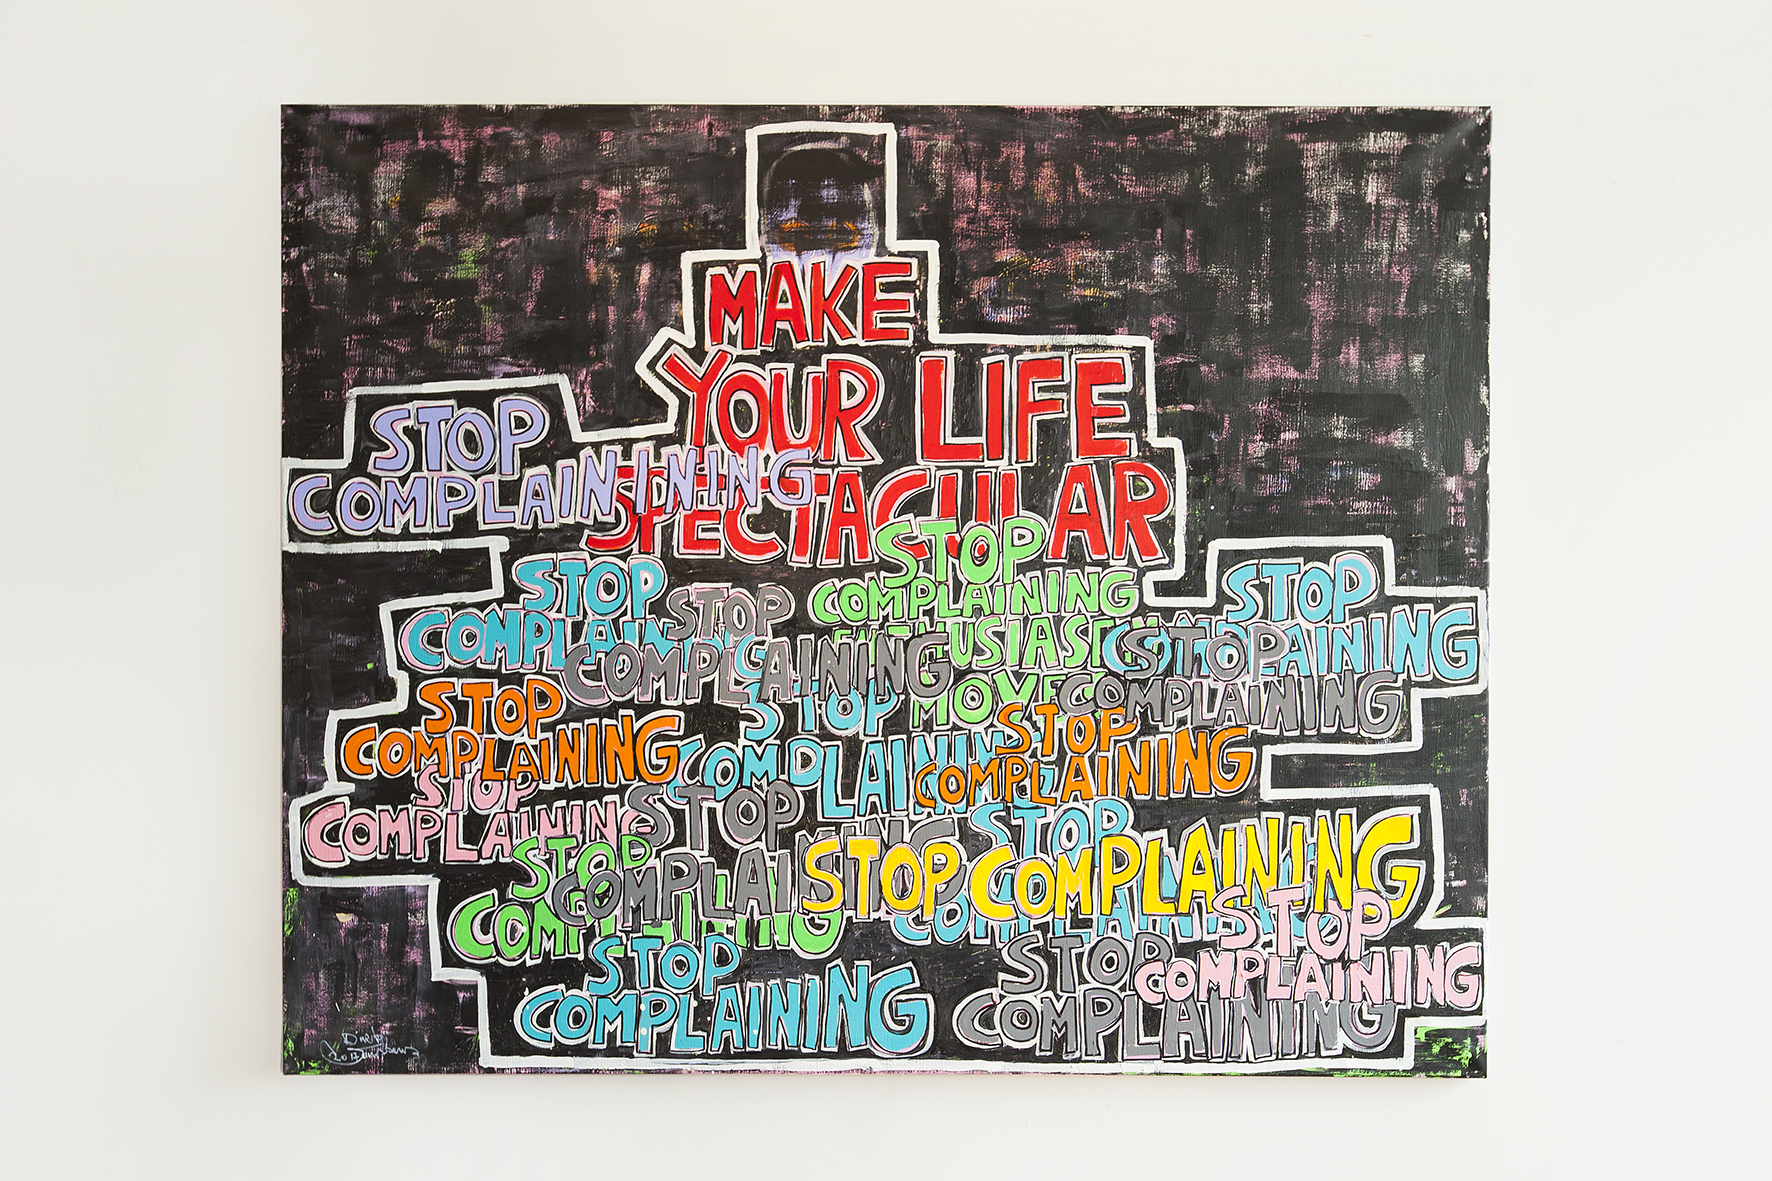 MAKE
YOUR LIFE
SPECTACULAR
STOP
COMPLAININING
STOP
COMPLAINING
ENTHUSIASM
STOP
COMPLAINING
STOP
COMPLAINING
STOP
COMPLAINING
STOP
COMPLAINING
STOP
COMPLAINING
STOP
COMPLAINING
STOP
COMPLAINING
STOP
COMPLAINING
STOP
COMPLAINING
STOP
COMPLAINING
STOP
COMPLAINING
STOP COMPLAINING
STOP
COMPLAINING
STOP
COMPLAINING
STOP
COMPLAINING